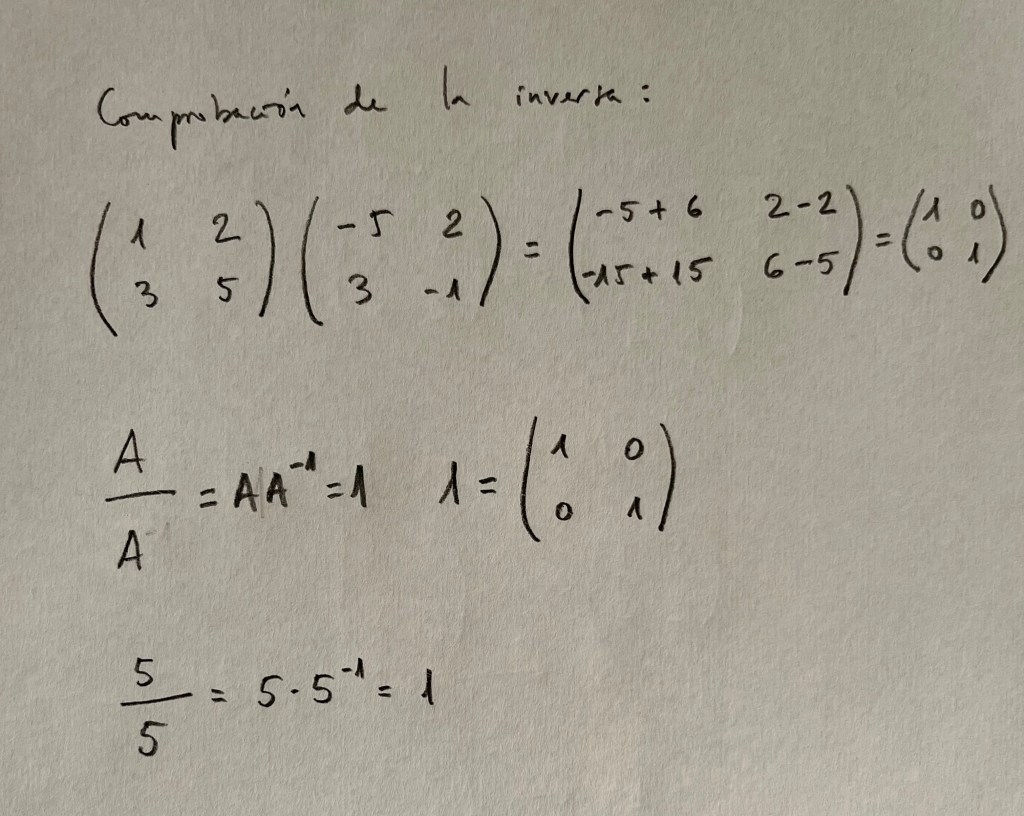 Comprobación de la inversa:
(1 2
3 5) (-5 2
3 -1) = (-5+6 2-2
-15+15 6-5) = (1 0
0 1)
A/A = AA⁻¹ = 1 1 = (1 0
0 1)
5/5 = 5·5⁻¹ = 1